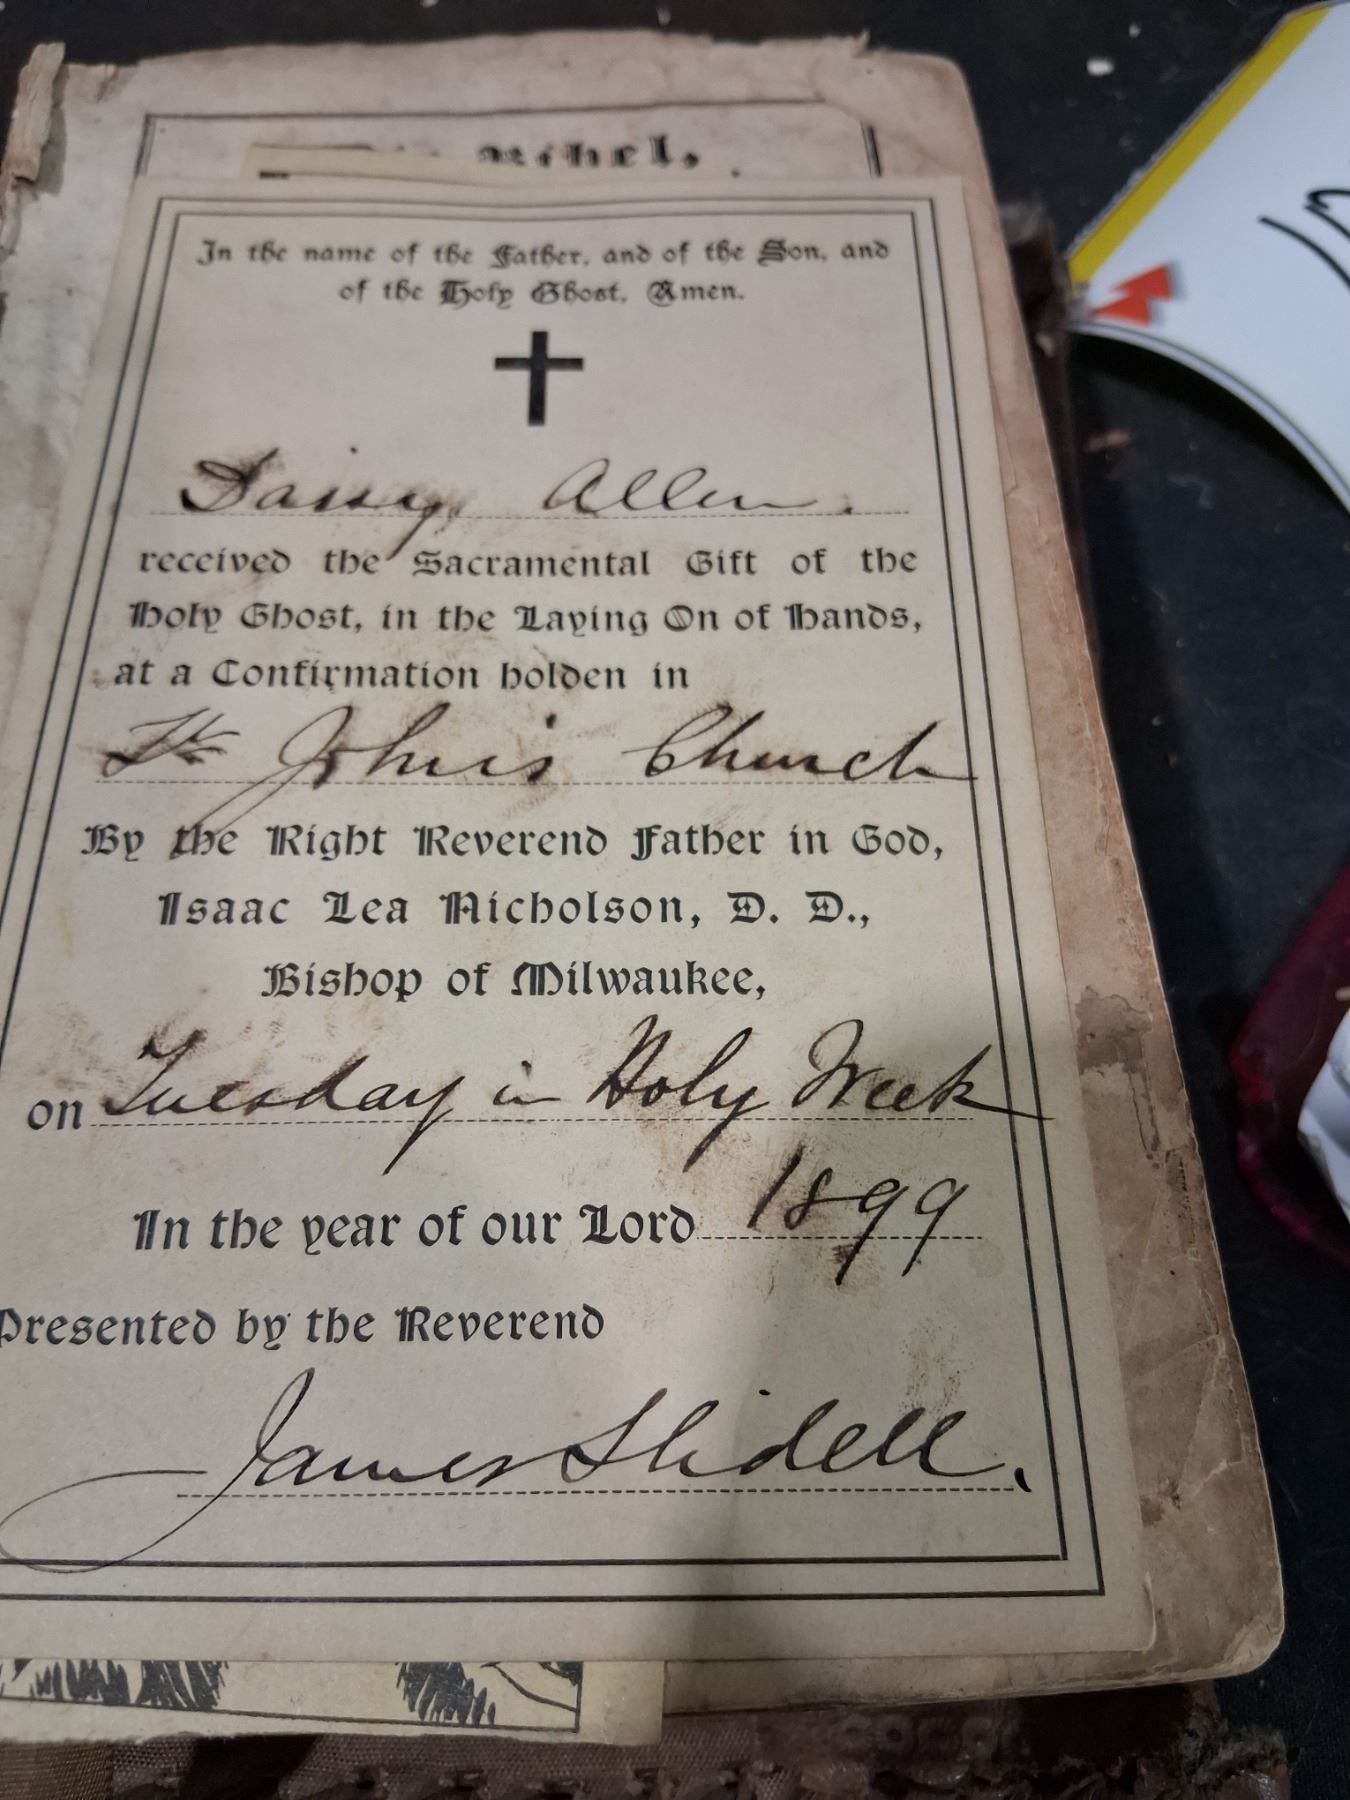 Bibel,
In the name of the Father, and of the Son, and
of the Holy Ghost, Amen.
Daisy Allen.
received the Sacramental Gift of the
Holy Ghost, in the Laying On of Hands,
at a Confirmation holden in
St John's Church
By the Right Reverend Father in God,
Isaac Lea Nicholson, D. D.,
Bishop of Milwaukee,
on Tuesday in Holy Week
In the year of our Lord 1899
Presented by the Reverend
James Slidell.